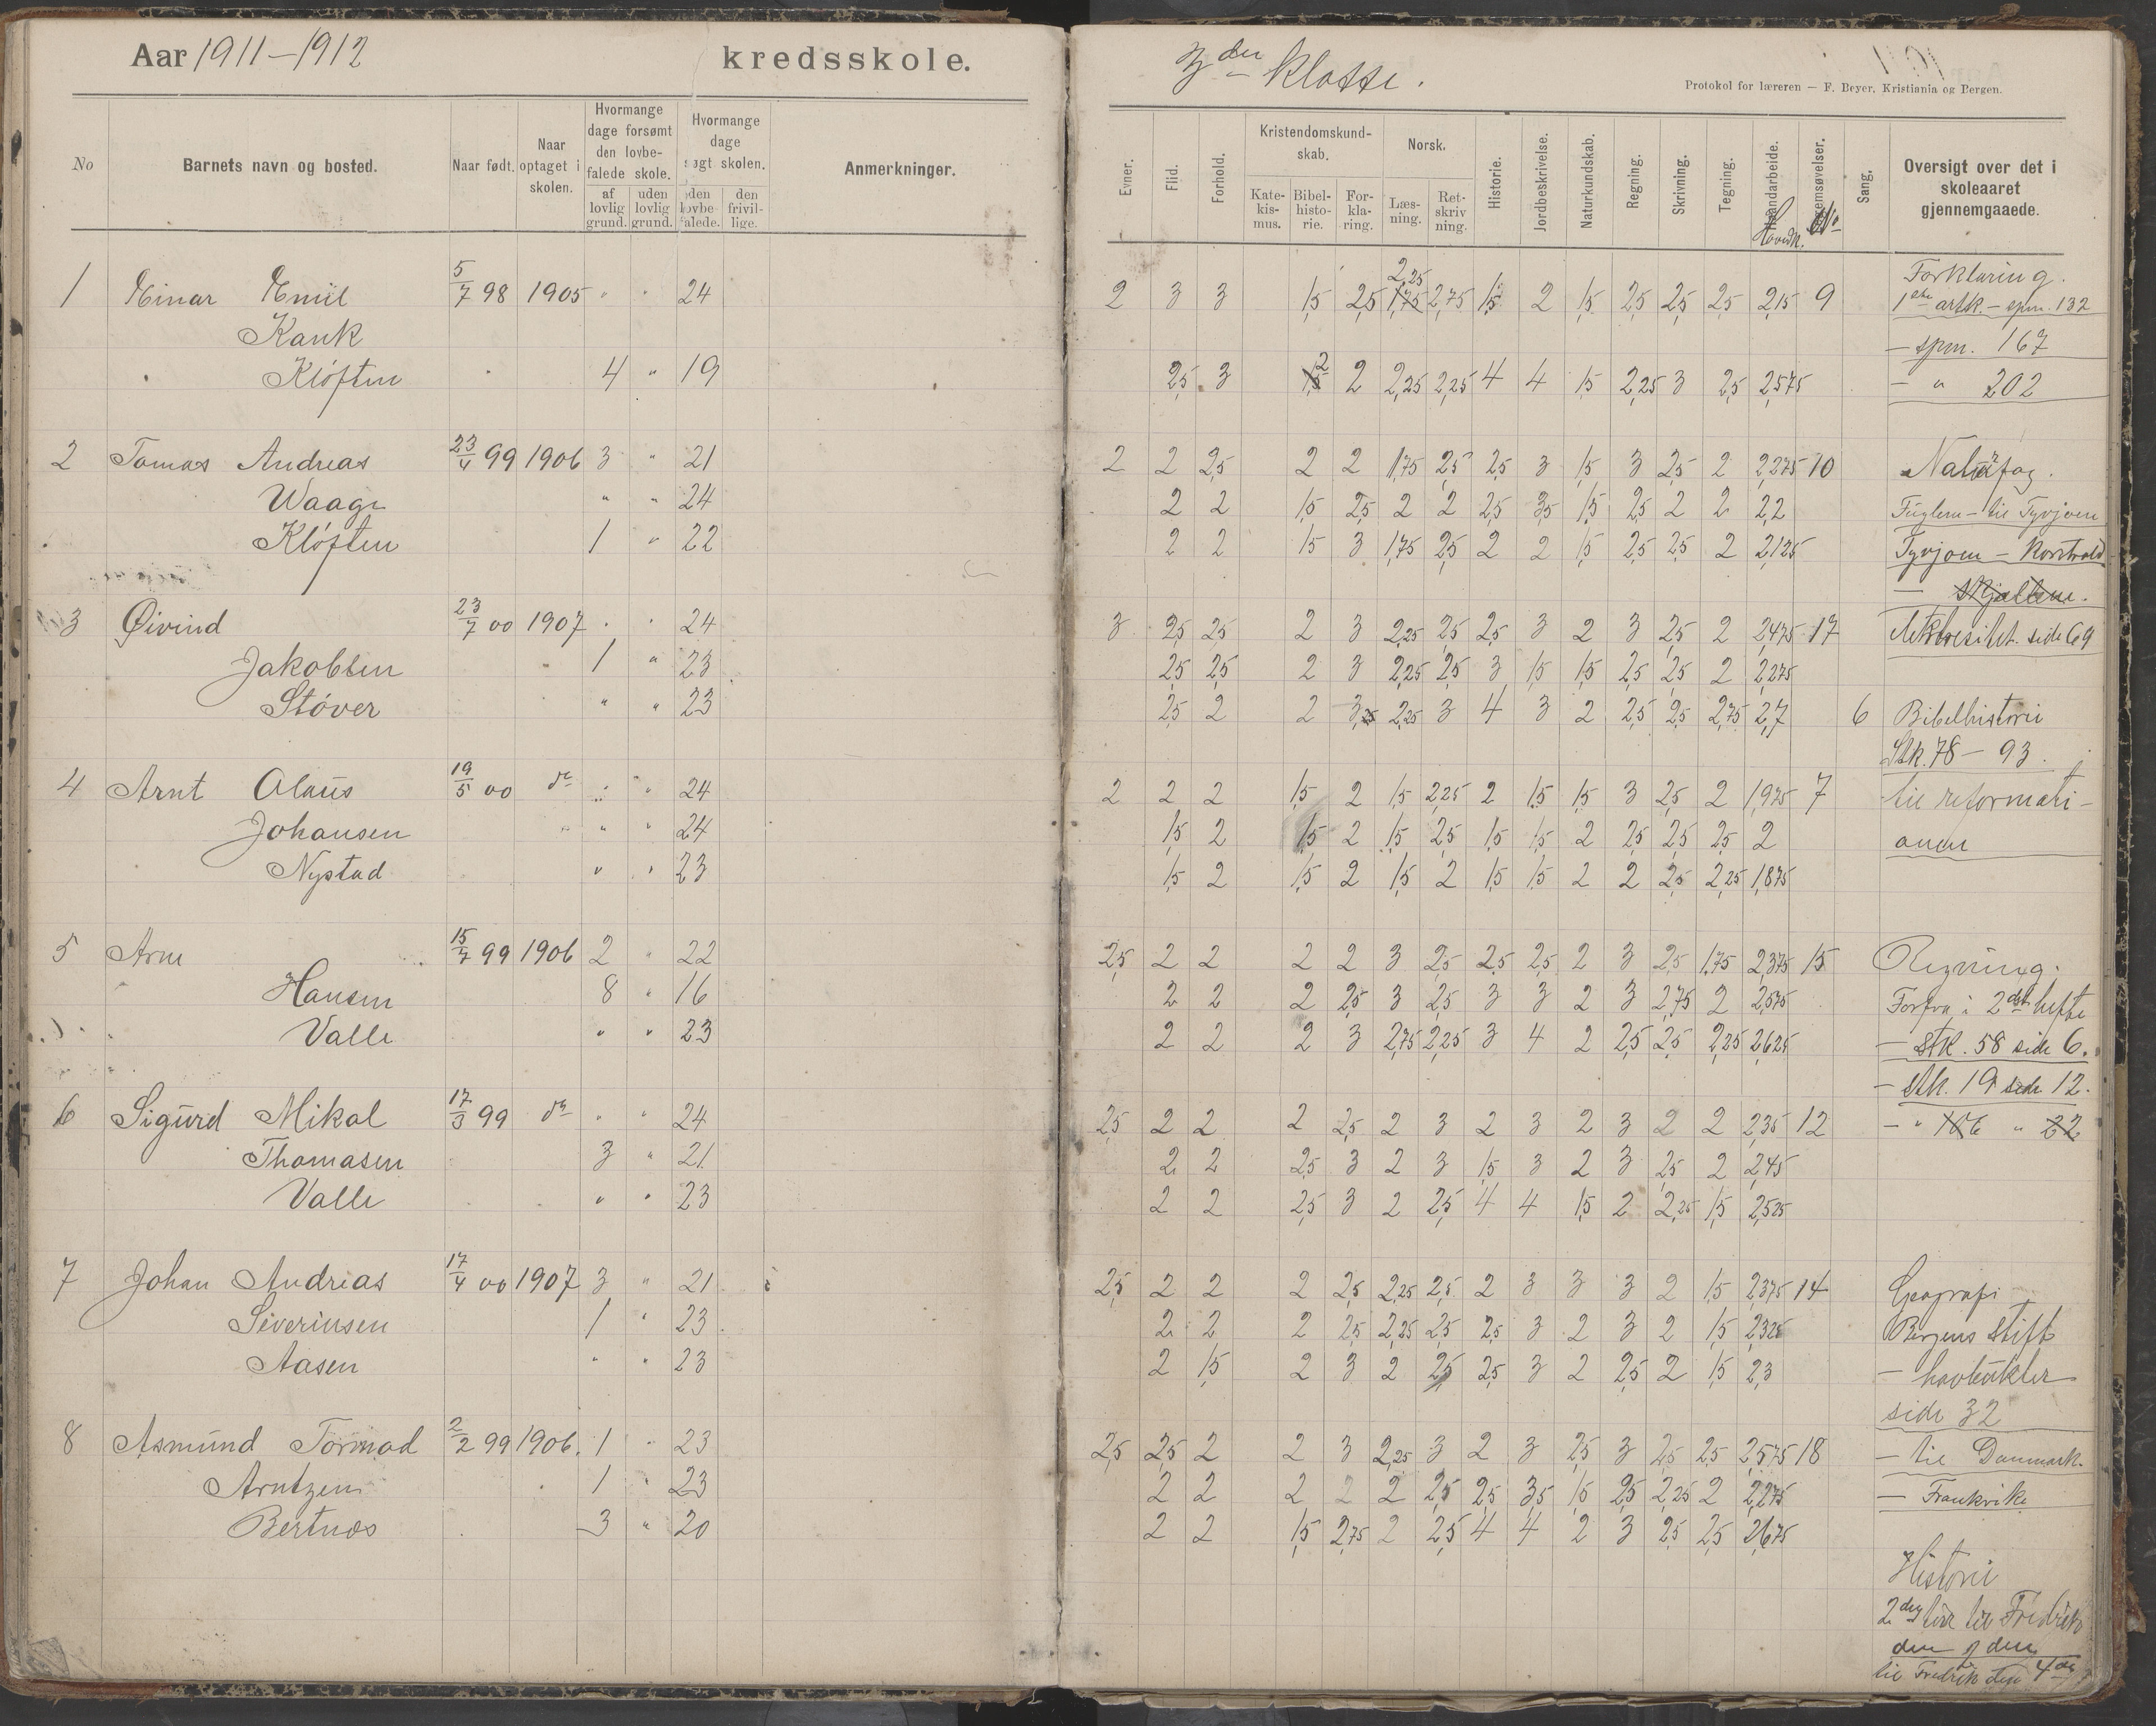 Aar 1911-1912 kredsskole.
3die klasse.
Protokol for læreren — F. Beyer, Kristiania og Bergen.
No Barnets navn og bosted. Naar født. Naar optaget i skolen. Hvormange dage forsømt den lovbefalede skole. af lovlig grund. uden lovlig grund. Hvormange dage søgt skolen. den lovbefalede. den frivillige. Anmerkninger.
Evner. Flid. Forhold. Kristendomskundskab. Katekismus. Bibelhistorie. Forklaring. Norsk. Læsning. Retskrivning. Historie. Jordbeskrivelse. Naturkundskab. Regning. Skrivning. Tegning. Haandarbeide. Hovedk. No Sang. Oversigt over det i skoleaaret gjennemgaaede.
1 Einar Emil 5/7 98 1905 " " 24
Kank
Kløften 4 " 19
2 Tomas Andreas 23/4 99 1906 3 " 21
Waage " " 24
Kløften 1 " 22
3 Øivind 23/7 00 1907 " " 24
Jakobsen 1 " 23
Støver " " 23
4 Arnt Olaus 19/5 00 do " " 24
Johansen " " 24
Nystad " " 23
5 Arne 15/7 99 1906 2 " 22
Hansen 8 " 16
Valle " " 23
6 Sigurd Mikal 17/3 99 do " " 24
Thomasen 3 " 21
Valle " " 23
7 Johan Andreas 17/4 00 1907 3 " 21
Siverinsen 1 " 23
Aasen " " 23
8 Asmund Tormod 2/2 99 1906. 1 " 23
Arntzen 1 " 23
Bertnes 3 " 20
2 3 3 1,5 2,5 2,25 1,75 2,75 1,5 2 1,5 2,5 2,5 2,5 2,15 9
2,5 3 1,5 2 2 2,25 2,25 4 4 1,5 2,25 3 2,5 2,575
2 2 2,5 2 2 1,75 2,5 2,5 3 1,5 3 2,5 2 2,275 10
2 2 1,5 2,5 2 2 2,5 3,5 1,5 2,5 2 2 2,2
2 2 1,5 3 1,75 2,5 2 2 1,5 2,5 2,5 2 2,125
3 2,5 2,5 2 3 2,25 2,5 2,5 3 2 3 2,5 2 2,475 17
2,5 2,5 2 3 2,25 2,5 3 1,5 1,5 2,5 2,5 2 2,275
2,5 2 2 3,25 2,25 3 4 3 2 2,5 2,5 2,75 2,7 6
2 2 2 1,5 2 1,5 2,25 2 1,5 1,5 3 2,5 2 1,975 7
1,5 2 1,5 2 1,5 2,5 1,5 1,5 2 2,5 2,5 2,5 2
1,5 2 1,5 2 1,5 2 1,5 1,5 2 2 2,5 2,25 1,875
2,5 2 2 2 2 3 2,5 2,5 2,5 2 3 2,5 1,75 2,375 15
2 2 2 2,5 3 2,5 3 3 2 3 2,75 2 2,575
2 2 2 3 2,75 2,25 3 4 2 2,5 2,5 2,25 2,625
2,5 2 2 2 2,5 2 3 2 3 2 3 2 2 2,35 12
2 2 2,5 3 2 3 1,5 3 2 3 2,5 2 2,45
2 2 2,5 3 2 2,5 4 4 1,5 2 2,25 1,5 2,525
2,5 2 2 2 2,5 2,25 2,5 2 3 3 3 2 1,5 2,375 14
2 2 2 2,5 2,25 2,5 2,5 3 2 3 2 1,5 2,325
2 1,5 2 3 2 2,5 2,5 3 2 2,5 2 1,5 2,3
2,5 2,5 2 2 3 2,25 3 2 3 2,5 3 2,5 2,5 2,575 18
2 2 2 2 2 2,5 2,5 3,5 1,5 2,5 2,25 2 2,275
2 2 1,5 2,75 2 2,5 4 4 2 3 2,5 2,5 2,675
Forklaring.
1ste artk. — spm. 132
— spm. 167
— " 202
Naturfag.
Fuglene — til Tyvjoen
Tyvjoen —
side 69
Bibelhistorie
Stk. 78 — 93.
til reformati-
onen
Regning.
Forfra i 2det hefte
— stk. 58 side 6.
— stk. 19 side 12.
— " 106 " 32
Geografi
Bergens stift
— havbukter
side 32
— til Danmark.
— Frankrike
Historie
til Fredrik
den 1den
til Fredrik den 4de